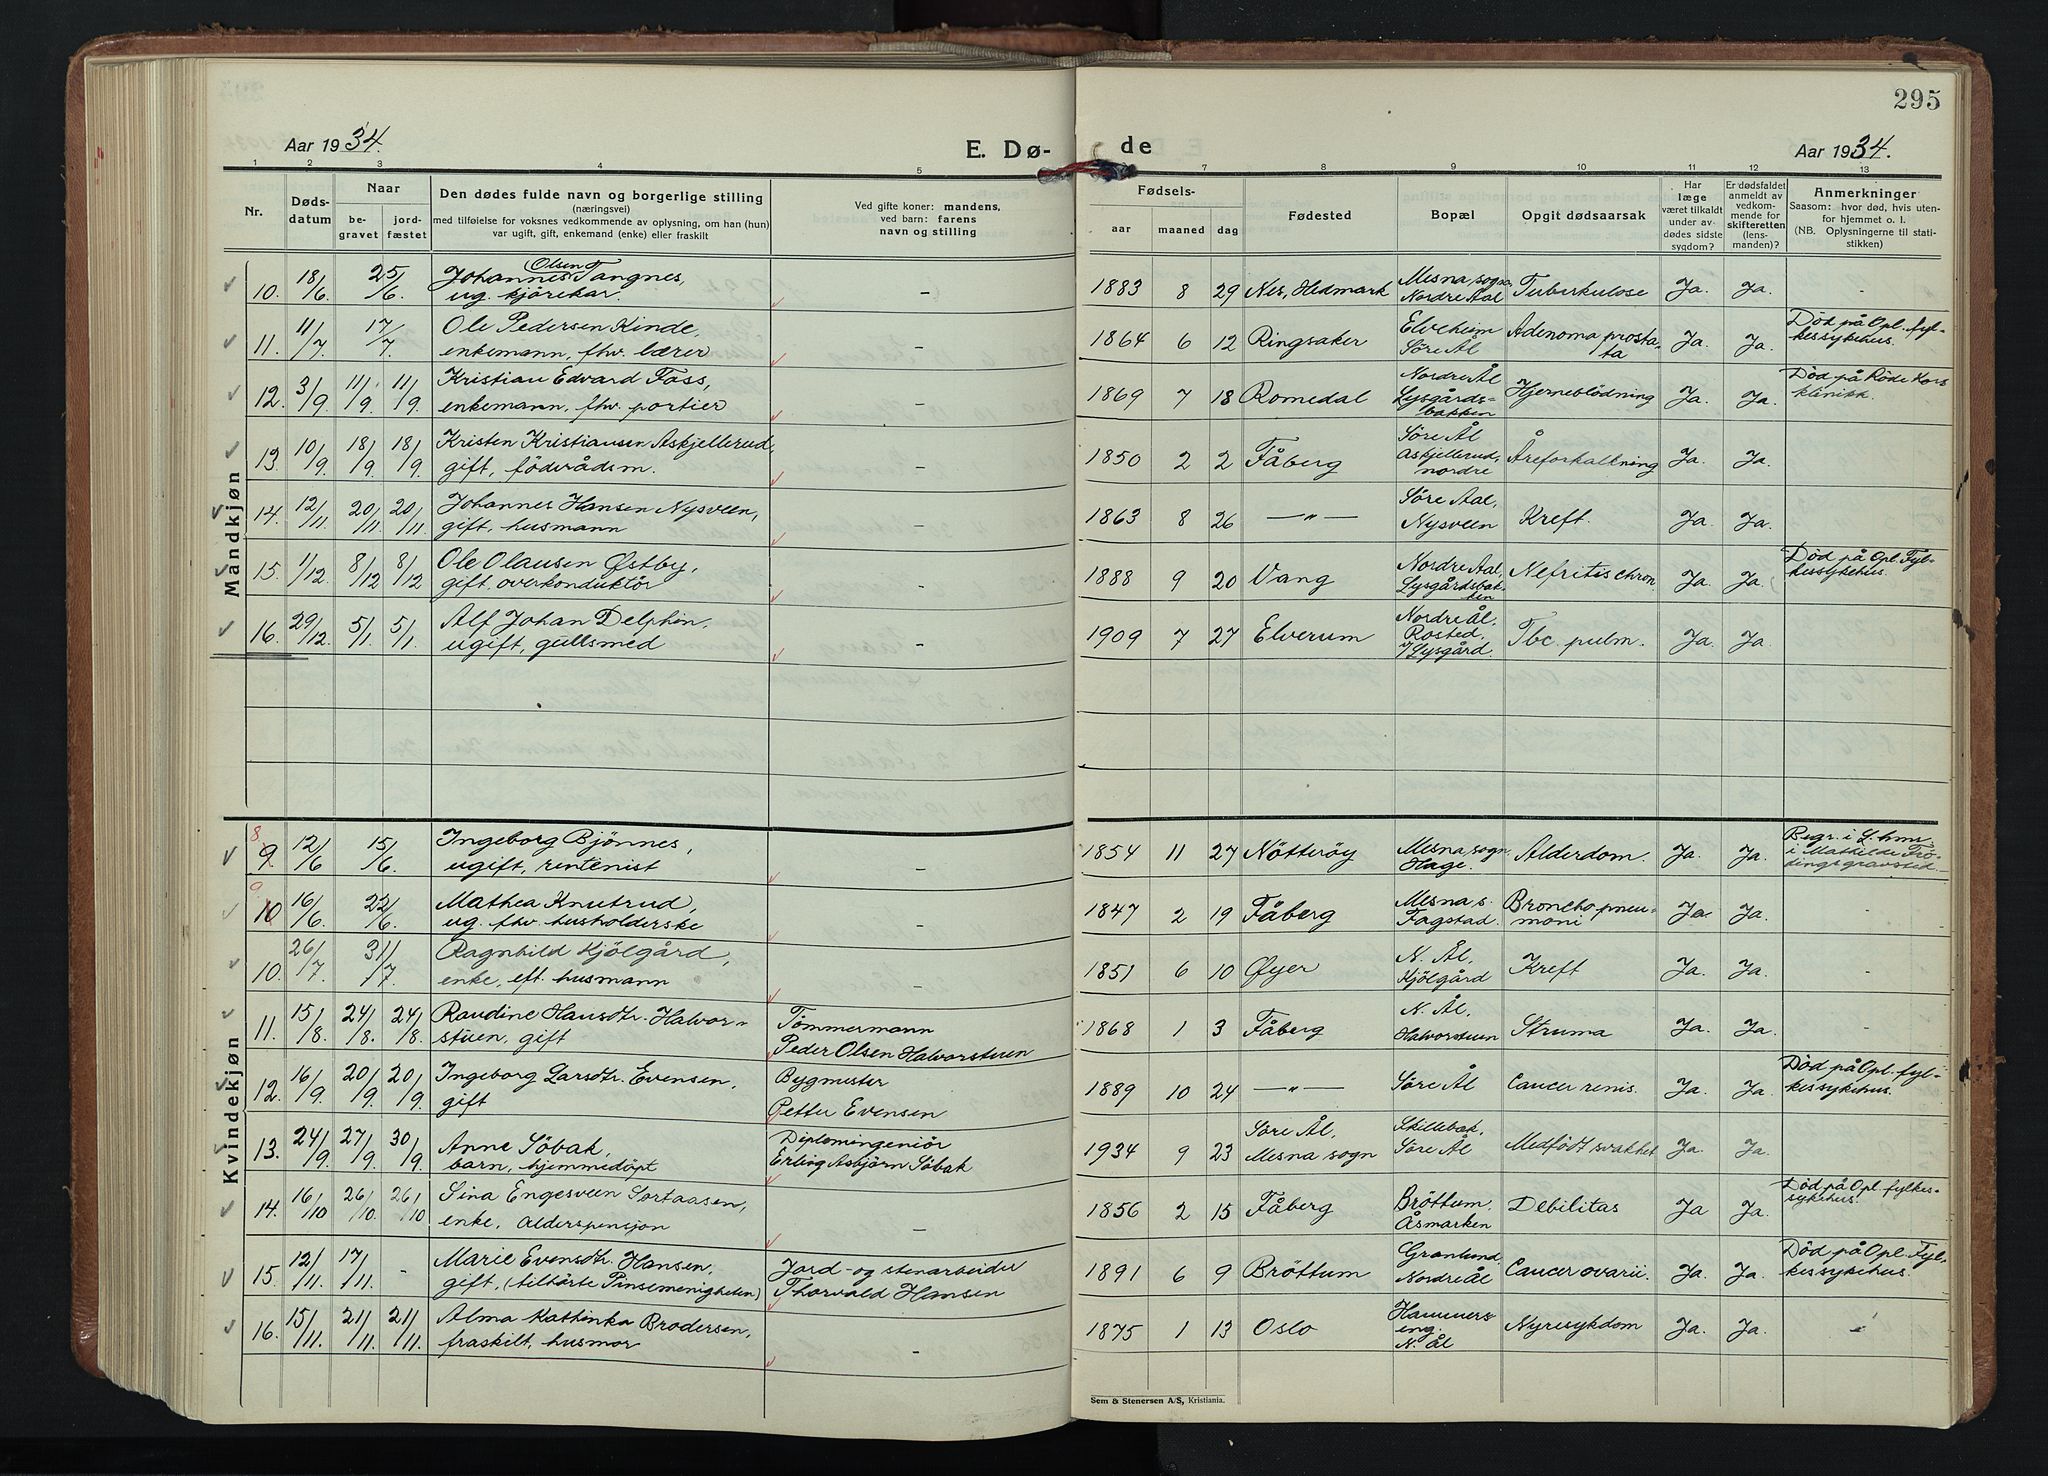 295
Aar 1934.
E. Dø-
de
Aar 1934.
1 2 3 4 5 7 8 9 10 11 12 13
Nr.
Døds-
datum
Naar
be-
gravet
jord-
fæstet
Den dødes fulde navn og borgerlige stilling
(næringsvei)
med tilføielse for voksnes vedkommende av oplysning, om han (hun)
var ugift, gift, enkemand (enke) eller fraskilt
Ved gifte koner: mandens,
ved barn: farens
navn og stilling
Fødsels-
aar
maaned
dag
Fødested
Bopæl
Opgit dødsaarsak
Har
læge
været tilkaldt
under av-
dødes sidste
sygdom?
Er dødsfaldet
anmeldt av
vedkom-
mende for
skifteretten
(lens-
manden)?
Anmerkninger
Saasom: hvor død, hvis uten-
for hjemmet o. l.
(NB. Oplysningerne til stati-
stikken)
Mandkjøn
10. 18/6 25/6 Johannes Olsen Tangnes, – 1883 8 29 Nes, Hedmark Mesna sogn, Tuberkulose Ja. Ja. -
ug. kjørekar. Nordre Aal
11. 11/7 17/7 Ole Pedersen Kinde, – 1864 6 12 Ringsaker Elveheim Adenoma prosta- Ja. Ja. Død på Opl. fyl-
enkemann, fhv. lærer Søre Ål ta kessykehus.
12. 3/9 11/9 11/9 Kristian Edvard Foss, – 1869 7 18 Romedal Nordre Ål Hjerneblödning Ja. Ja. Død på Røde Kors
enkemann, fhv. portier Lysgårds- klinikk.
bakken
13. 10/9 18/9 18/9 Kristen Kristiansen Askjellerud, – 1850 2 2 Fåberg Søre Ål Åreforkallning Ja. Ja.
gift, föderådsm. Askjellerud,
nordre
14. 12/11 20/11 20/11 Johannes Hansen Nysveen, – 1863 8 26 —„— Söre Aal, Kreft. Ja. Ja.
gift, husmann Nysveen
15. 1/12 8/12 8/12 Ole Olausen Østby, – 1888 9 20 Vang Nordre Aal, Nefritis chron. Ja. Ja. Død på Opl. Fyl-
gift, overkonduktør Lysgårdsbak- kessykehus.
ken
16. 29/12 5/1 5/1 Alf Johan Delphin, – 1909 7 27 Elverum Nordre Ål, Tbc. pulm. Ja. Ja.
ugift, gullsmed Rosted,
v/Lysgård.
Kvindekjøn
8 9. 12/6 15/6 Ingeborg Bjønnes, – 1854 11 27 Nötteröy Mesna sogn Alderdom. Ja. Ja. Begr. i L.hmr,
ugift, rentenist Hage. i Mathilde Frö-
dings gravsted.
9 10 16/6 22/6 Mathea Knutrud, – 1847 2 19 Fåberg Mesna s. Broncho pneu- Ja. Ja. -
ug. fhv. husholderske Fagstad. moni
10. 26/7 31/7 Ragnhild Kjölgård, – 1851 6 10 Øyer N. Ål, Kreft Ja. Ja. -
enke, eft. husmann Kjölgård
11. 15/8. 24/8. 24/8. Randine Hansdtr. Halvor- Tömmermann 1868 1 3 Fåberg N. Ål. Struma Ja. Ja. -
stuen, gift Peder Olsen Halvorstuen Halvorstuen
12. 16/9. 20/9. 20/9. Ingeborg Larsdtr. Evensen, Bygmester 1889 10 24 —„— Søre Ål Cancer renis. Ja. Ja. Død på Opl. fyl-
gift Petter Evensen kessykehus.
13. 24/9. 27/9. 30/9. Anne Söbak, Diplomingeniör 1934 9 23 Søre Ål, Skillebæk, Medfödt svakhet Ja. Ja.
barn, hjemmedöpt Erling Asbjörn Söbak Mesna sogn Søre Ål
14. 16/10 26/10. 26/10 Sina Engesveen Sortaasen, – 1856 2 15 Fåberg Bröttum, Debilitas Ja Ja. Død på Opl. fylkes-
enke, alderspensjon Åsmarken sykehus.
15. 12/11. 17/11. - Marie Evensdtr. Hansen, Jord- og stenarbeider 1891 6 9 Bröttum Granlund, Cancer ovarii. Ja. Ja. Død på Opl. Fyl-
gift, (tilhörte Pinsemenigheten) Thorvald Hansen Nordre Ål kessykehus.
16. 15/11. 21/11 21/11 Alma Kathinka Brodersen, – 1875 1 13 Oslo Hammers- Nyresykdom Ja. Ja.
fraskilt, husmor eng.
N. Ål
Sem & Stenersen A/S, Kristiania.